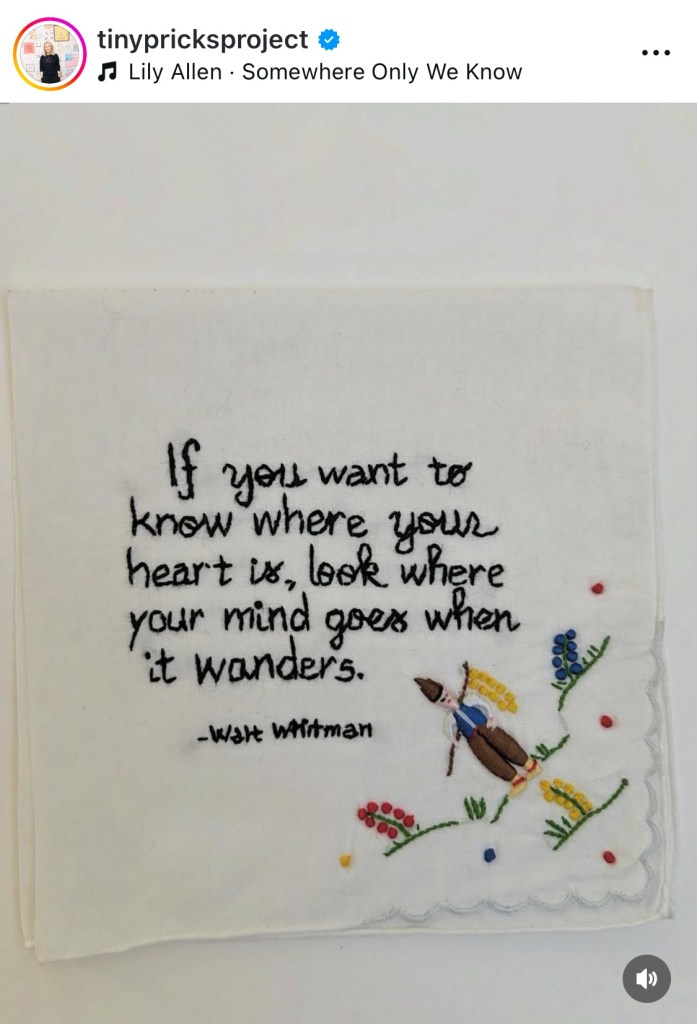 tinypricksproject
Lily Allen · Somewhere Only We Know
If you want to
know where your
heart is, look where
your mind goes when
it wanders.
-Walt Whitman